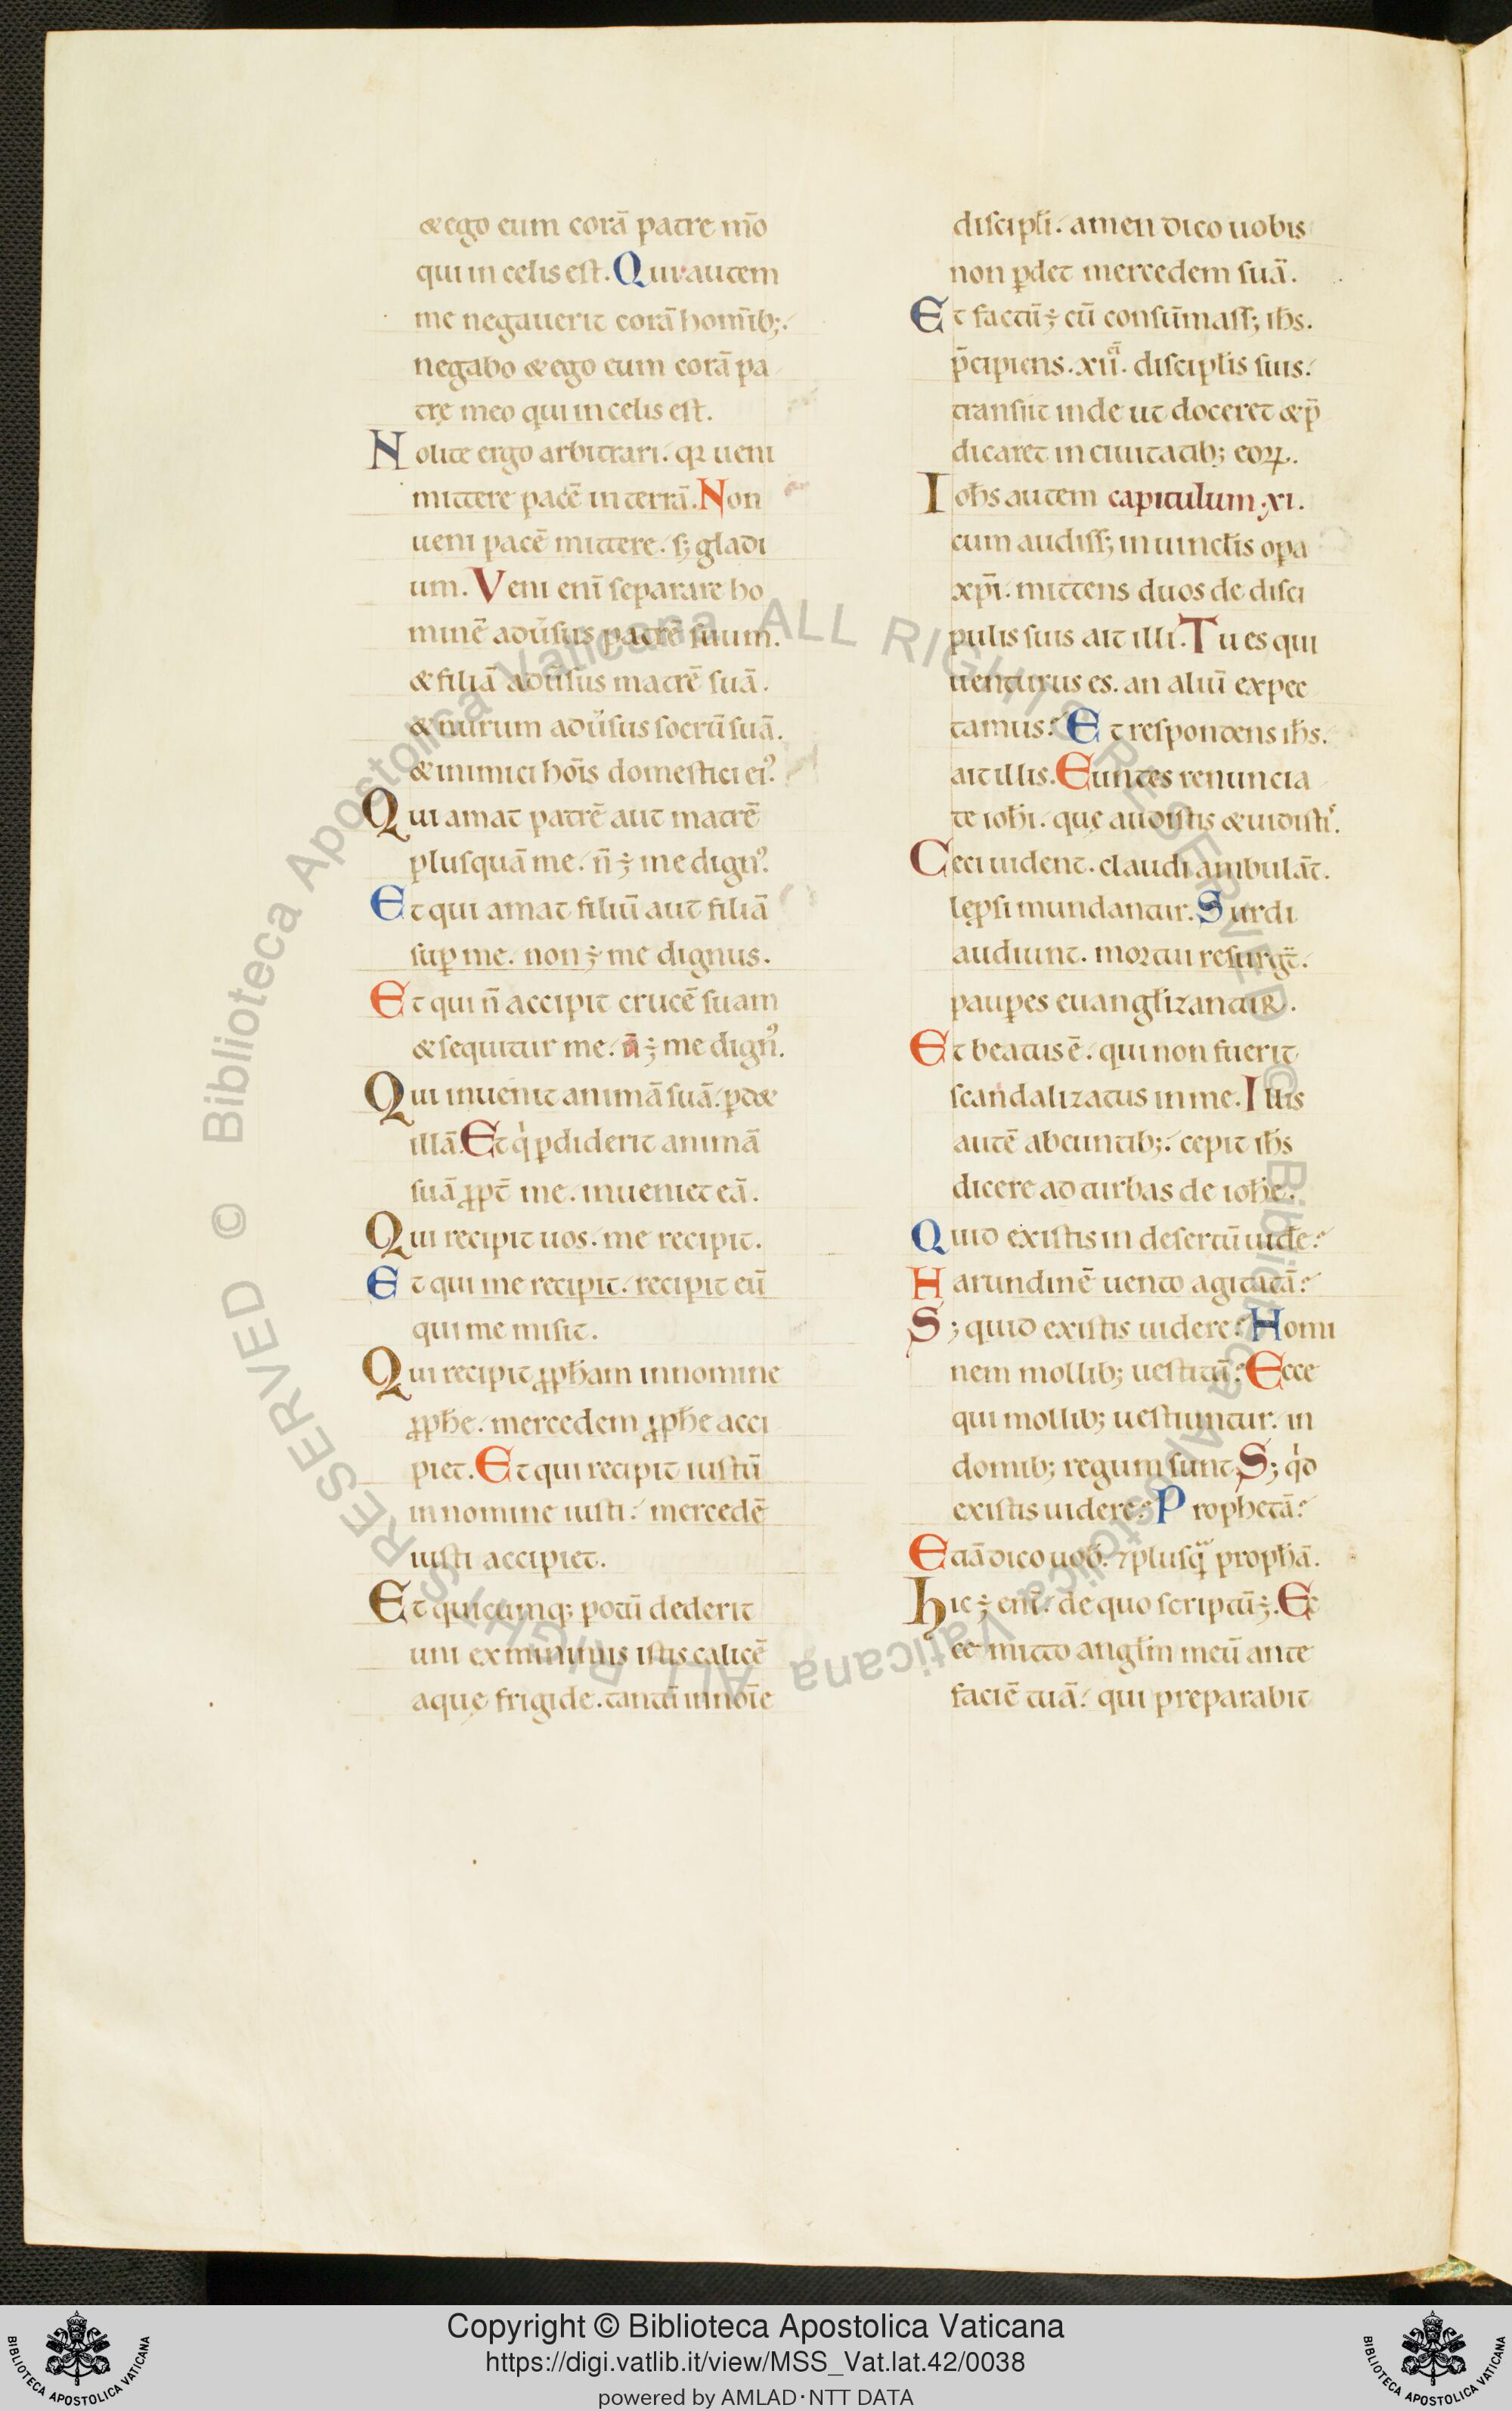 & ego eum corā patre m̄o
qui in celis est. Qui autem
me negauerit corā hom̄ib;.
negabo & ego eum corā pa
tre meo qui in celis est.
Nolite ergo arbitrari. qꝛ ueni
mittere pacē in terrā. Non
ueni pacē mittere. s; gladi
um. Veni enī separare ho
minē aduͥsus patrē suum.
& filiā aduͥsus matrē suā.
& nurum aduͥsus socrū suā.
& inimici hoīs domestici eiꝰ.
Qui amat patrē aut matrē
plusquā me. n̄ ÷ me dignꝰ.
Et qui amat filiū aut filiā
sup̱ me. non ÷ me dignus.
Et qui n̄ accipit crucē suam
& sequitur me. n̄ ÷ me dignꝰ.
Qui inuenit animā suā. ꝑd&
illā. Et qͥ ꝑdiderit animā
suā ꝓpt̄ me. inueniet eā.
Qui recipit uos. me recipit.
Et qui me recipit. recipit eū
qui me misit.
Qui recipit ꝓph̄am in nomine
ꝓph̄e. mercedem ꝓph̄e acci
piet. Et qui recipit iustū
in nomine iusti. mercedē
iusti accipiet.
Et quicumq; potū dederit
uni ex minimis istis calicē
aquę frigide. tantū in noīe
discipłi. amen dico uobis
non ꝑdet mercedem suā.
Et factū ÷ cū consūmass; ih̄s.
p̄cipiens .xii. discipłis suis.
transiit inde ut doceret & p̄
dicaret in ciuitatib; eoꝝ.
Ioh̄s autem capitulum .xi.
cum audiss; in uincłis oꝑa
xp̄i. mittens duos de disci
pulis suis ait illi. Tu es qui
uenturus es. an aliū expec
tamus? Et respondens ih̄s.
ait illis. Euntes renuncia
te ioh̄i. quę audistis & uidistiˢ.
Ceci uident. claudi ambulāt.
lępsi mundantur. Surdi
audiunt. mortui resurgt̄.
pauꝑes euangłizantur.
Et beatus ē. qui non fuerit
scandalizatus in me. Illis
autē abeuntib;. cepit ih̄s
dicere ad turbas de ioh̄e.
Quid existis in desertū uid̄e?
Harundinē uento agitatā?
S; quid existis uidere? Homi
nem mollib; uestitū? Ecce
qui mollib; uestiuntur. in
domib; regum sunt. S; qͥd
existis uidere? Prophetā?
Etiā dico uob̄. ⁊ plusqᷓ proph̄ā.
Hic ÷ enī. de quo scriptū ÷. Ec
ce mitto angłm meū ante
faciē tuā. qui preparabit
Copyright © Biblioteca Apostolica Vaticana
https://digi.vatlib.it/view/MSS_Vat.lat.42/0038
powered by AMLAD·NTT DATA
BIBLIOTECA APOSTOLICA VATICANA
BIBLIOTECA APOSTOLICA VATICANA
© Biblioteca Apostolica Vaticana ALL RIGHTS RESERVED
© Biblioteca Apostolica Vaticana ALL RIGHTS RESERVED